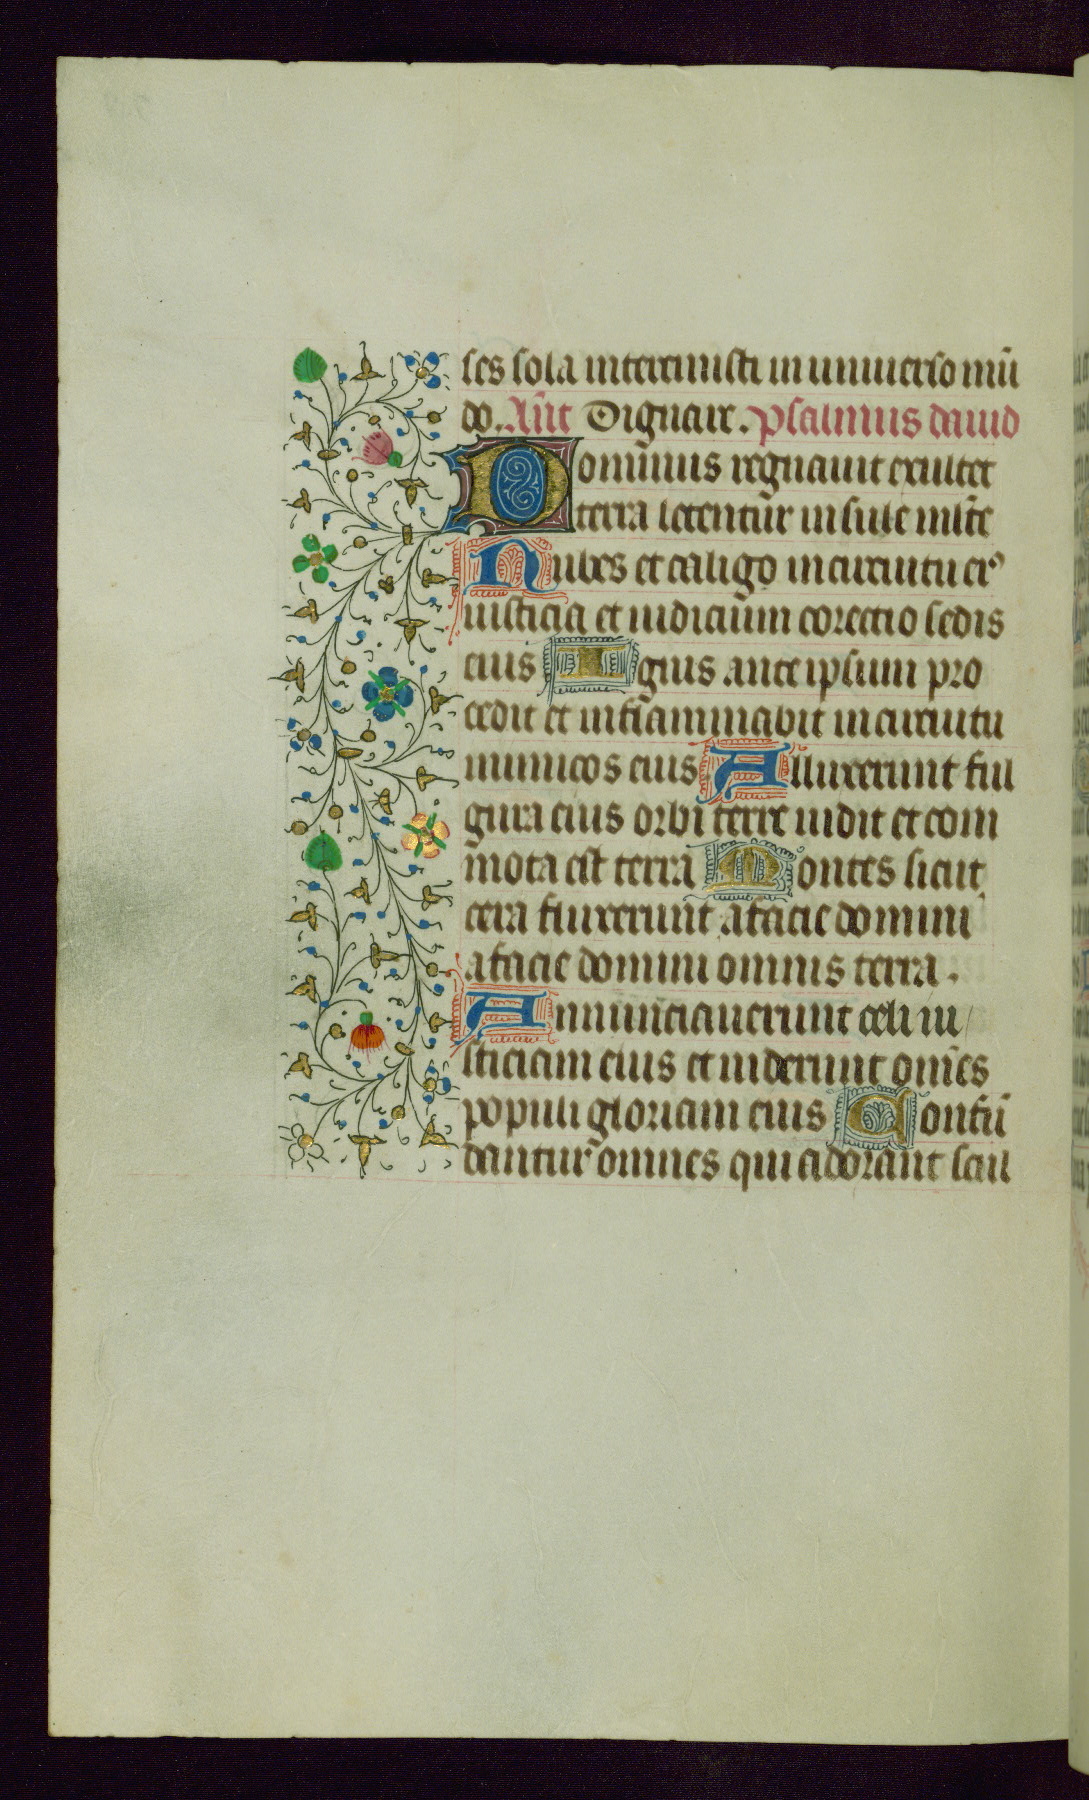 ses sola interemisti in uniuerso mū
do. Añt Dignare. Psalmus dauid
Dominus regnauit exultet
terra letentur insule mlte
Nubes et caligo in circuitu eiꝰ
iusticia et iudicium corectio sedis
eius Ignis ante ipsum pro
cedit et inflammabit in circuitu
inimicos eius Alluxerunt ful
gura eius orbi terre uidit et com
mota est terra Montes sicut
cera fluxerunt a facie domini
a facie domini omnis terra.
Annunciauerunt celi iu/
sticiam eius et uiderunt om̄es
populi gloriam eius Confū
dantur omnes qui adorant scul